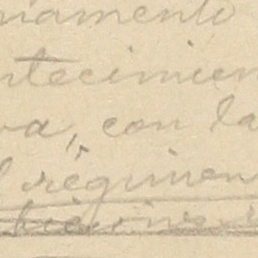 namento
ntecimien
va, con la
l régimen